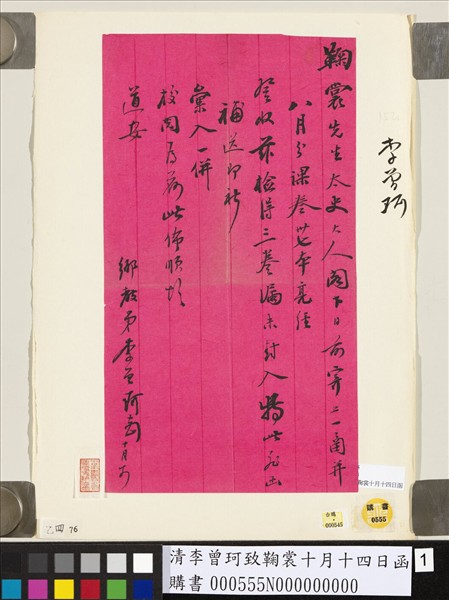 鞠裳先生太史大人閣下日前寄二一函并
八月分課叁卅七本亮經
登收茲檢得三卷漏未封入特此送出
補送即祈
彙入一併
校閱為荷此佈順頌
道安
鄉教弟李曾珂
李曾珂
鞠裳十月十四日函
古碼
000545
讀書
0555
乙四 76
清李曾珂致鞠裳十月十四日函
購書 000555N000000000
1